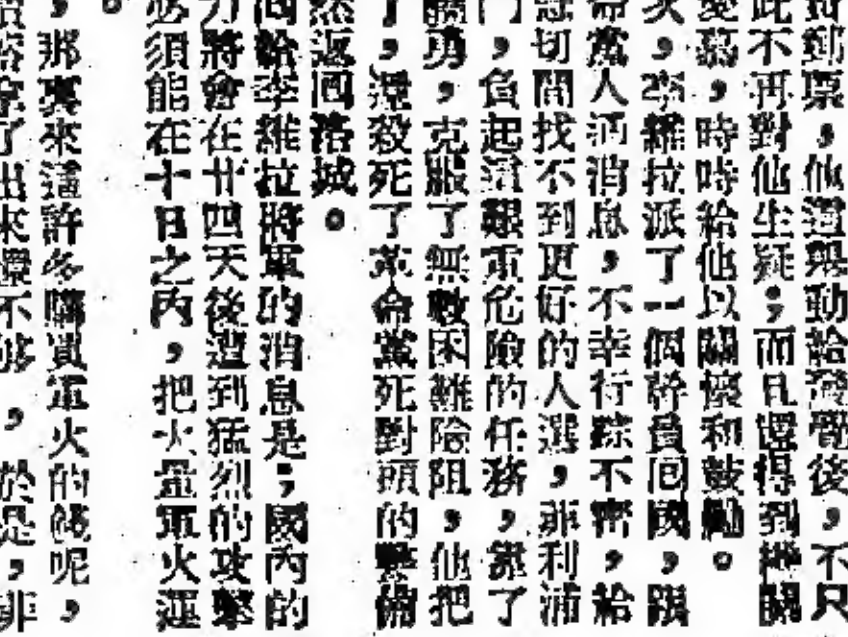 到票，他這舉動給發覺後，不只
此不再對他生疑；而且還得到機關
愛慕，時時給他以關懷和鼓勵。
次，李維拉派了一個幹員回國，跟
命黨人通消息，不幸行踪不密，給
急切間找不到更好的人選，菲利浦
門，負起這艱重危險的任務，靠了
勇，克服了無數困難險阻，他把
了，還殺死了革命黨死對頭的
然返回洛城。
回給李維拉將軍的消息是；國內的
力將會在廿四天後遭到猛烈的攻擊
必須能在十日之內，把大量軍火運
。
，那裏來這許多購買軍火的錢呢，
拿了出來還不够，於是，菲